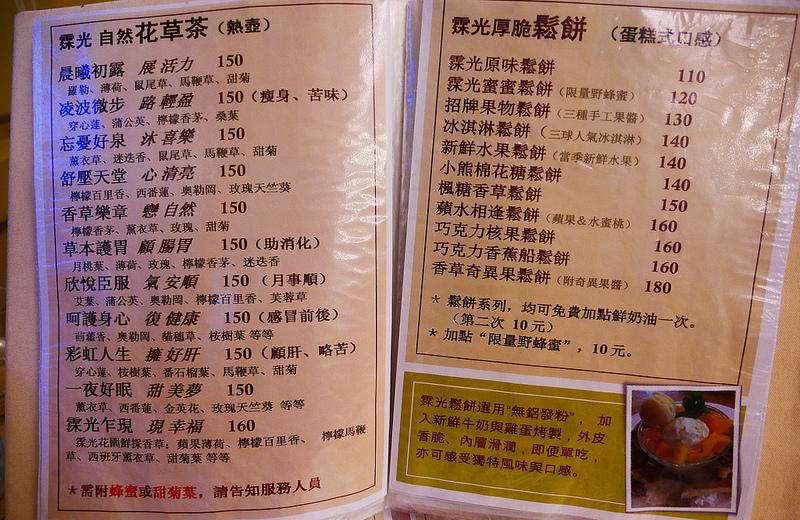 霂光 自然花草茶（熱壺）
晨曦初露 展活力 150
羅勒、薄荷、鼠尾草、馬鞭草、甜菊
凌波微步 路輕盈 150（瘦身、苦味）
穿心蓮、蒲公英、檸檬香茅、桑葉
忘憂好泉 沐喜樂 150
薰衣草、迷迭香、鼠尾草、馬鞭草、甜菊
舒壓天堂 心清亮 150
檸檬百里香、西番蓮、奧勒岡、玫瑰天竺葵
香草樂章 戀自然 150
檸檬香茅、薰衣草、玫瑰、甜菊
草本護胃 顧腸胃 150（助消化）
月桃葉、薄荷、玫瑰、檸檬香茅、迷迭香
欣悅臣服 氣安順 150（月事順）
艾葉、蒲公英、奧勒岡、檸檬百里香、芙蓉草
呵護身心 復健康 150（感冒前後）
茴藿香、奧勒岡、貓穗草、桉樹葉 等等
彩虹人生 擁好肝 150（顧肝、略苦）
穿心蓮、桉樹葉、番石榴葉、馬鞭草、甜菊
一夜好眠 甜美夢 150
薰衣草、西番蓮、金英花、玫瑰天竺葵 等等
霂光乍現 現幸福 160
霂光花園鮮採香草：蘋果薄荷、檸檬百里香、 檸檬馬鞭
草、西班牙薰衣草、甜菊葉 等等
＊需附蜂蜜或甜菊葉，請告知服務人員
霂光厚脆鬆餅（蛋糕式口感）
霂光原味鬆餅 110
霂光蜜蜜鬆餅（限量野蜂蜜） 120
招牌果物鬆餅（三種手工果醬） 130
冰淇淋鬆餅（三球人氣冰淇淋） 140
新鮮水果鬆餅（當季新鮮水果） 140
小熊棉花糖鬆餅 140
楓糖香草鬆餅 150
蘋水相逢鬆餅（蘋果＆水蜜桃） 160
巧克力核果鬆餅 160
巧克力香蕉船鬆餅 160
香草奇異果鬆餅（附奇異果醬） 180
＊ 鬆餅系列，均可免費加點鮮奶油一次。
（第二次 10 元）
＊ 加點“限量野蜂蜜”，10 元。
霂光鬆餅選用“無鋁發粉”， 加
入新鮮牛奶與雞蛋烤製，外皮
香脆、內層滑潤，即便單吃，
亦可感受獨特風味與口感。